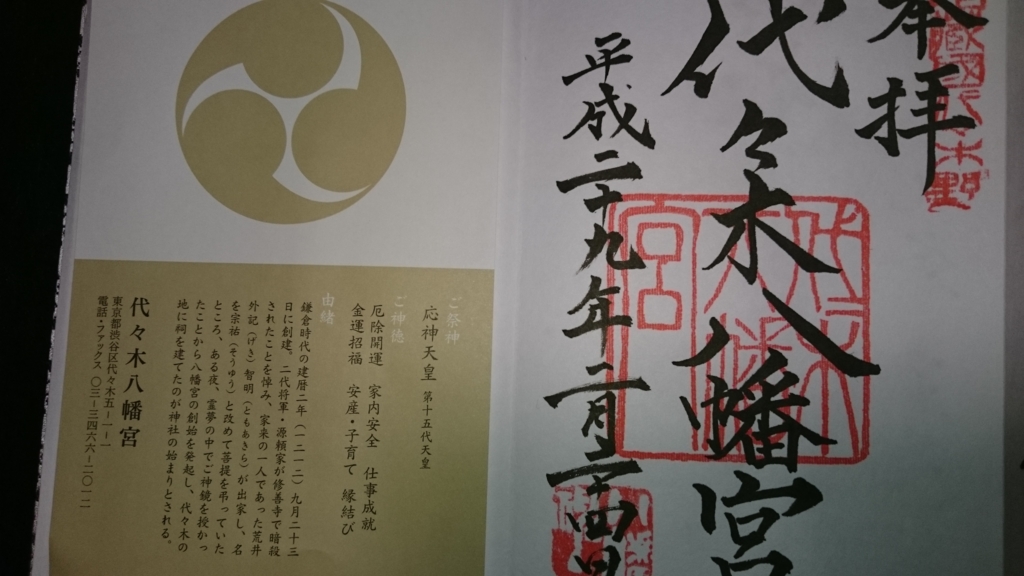 奉拝
代々木八幡宮
平成二十九年二月二十四日
ご祭神
応神天皇 第十五代天皇
ご神徳
厄除開運 家内安全 仕事成就
金運招福 安産・子育て 縁結び
由緒
鎌倉時代の建暦二年(一二一二)九月二十三
日に創建。二代将軍・源頼家が修善寺で暗殺
されたことを悼み、家来の一人であった荒井
外記(げき)智明(ともあきら)が出家し、名
を宗祐(そうゆう)と改めて菩提を弔っていた
ところ、ある夜、霊夢の中でご神鏡を授かっ
たことから八幡宮の創始を発起し、代々木の
地に祠を建てたのが神社の始まりとされる。
代々木八幡宮
東京都渋谷区代々木五-一-一
電話・ファックス 〇三-三四六六-二〇一二